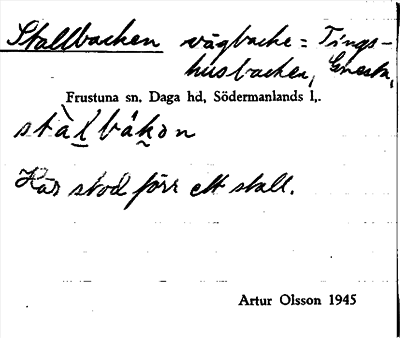 Stallbacken vägbacke = Tings-
husbacken, Gnesta,
Frustuna sn, Daga hd, Södermanlands l,.
stàl̠bákon
Här stod förr ett stall.
Artur Olsson 1945